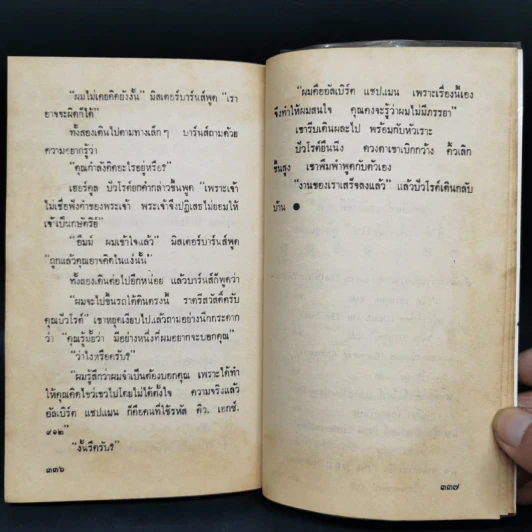 "ผมไม่เคยคิดยังงั้น" มิสเตอร์บาร์นส์พูด "เรา
อาจจะผิดก็ได้"
ทั้งสองเดินไปตามทางเล็กๆ บาร์นส์ถามด้วย
ความอยากรู้ว่า
"คุณกำลังคิดอะไรอยู่หรือ?"
เฮอร์คูล ปัวโรต์ยกคำกล่าวขึ้นพูด "เพราะเจ้า
ไม่เชื่อฟังคำของพระเจ้า พระเจ้าจึงปฏิเสธไม่ยอมให้
เจ้าเป็นกษัตริย์"
"ฮึมม์ ผมเข้าใจแล้ว" มิสเตอร์บาร์นส์พูด
"ถูกแล้วคุณอาจคิดในแง่นั้น"
ทั้งสองเดินต่อไปอีกหน่อย แล้วบาร์นส์ก็พูดว่า
"ผมจะไปขึ้นรถใต้ดินตรงนี้ ราตรีสวัสดิ์ครับ
คุณปัวโรต์" เขาหยุดเงียบไปแล้วถามอย่างนึกกระดาก
ว่า "คุณรู้มั้ยว่า มีอย่างหนึ่งที่ผมอยากจะบอกคุณ"
"ว่าไงหรือครับ?"
"ผมรู้สึกว่าผมจำเป็นต้องบอกคุณ เพราะได้ทำ
ให้คุณคิดไขว้เขวไปโดยไม่ได้ตั้งใจ ความจริงแล้ว
อัลเบิร์ต แชปแมน ก็คือคนที่ใช้รหัส คิว. เอกซ์.
๙๑๒"
"งั้นรึครับ?"
๓๓๖
"ผมคืออัลเบิร์ต แชปแมน เพราะเรื่องนี้เอง
จึงทำให้ผมสนใจ คุณคงจะรู้ว่าผมไม่มีภรรยา"
เขารีบเดินผละไป พร้อมกับหัวเราะ
ปัวโรต์ยืนนิ่ง ดวงตาเขาเบิกกว้าง คิ้วเลิก
ขึ้นสูง เขาพึมพำพูดกับตัวเอง
"งานของเราเสร็จลงแล้ว" แล้วปัวโรต์เดินกลับ
บ้าน ●
๓๓๗